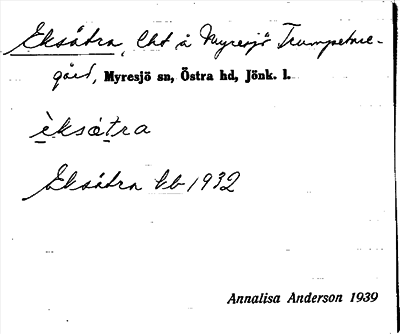 Eksåtra, lht å Myresjö Trumpetare-
gård, Myresjö sn, Östra hd, Jönk. l.
èksøtra
Eksåtra kb 1932
Annalisa Anderson 1939